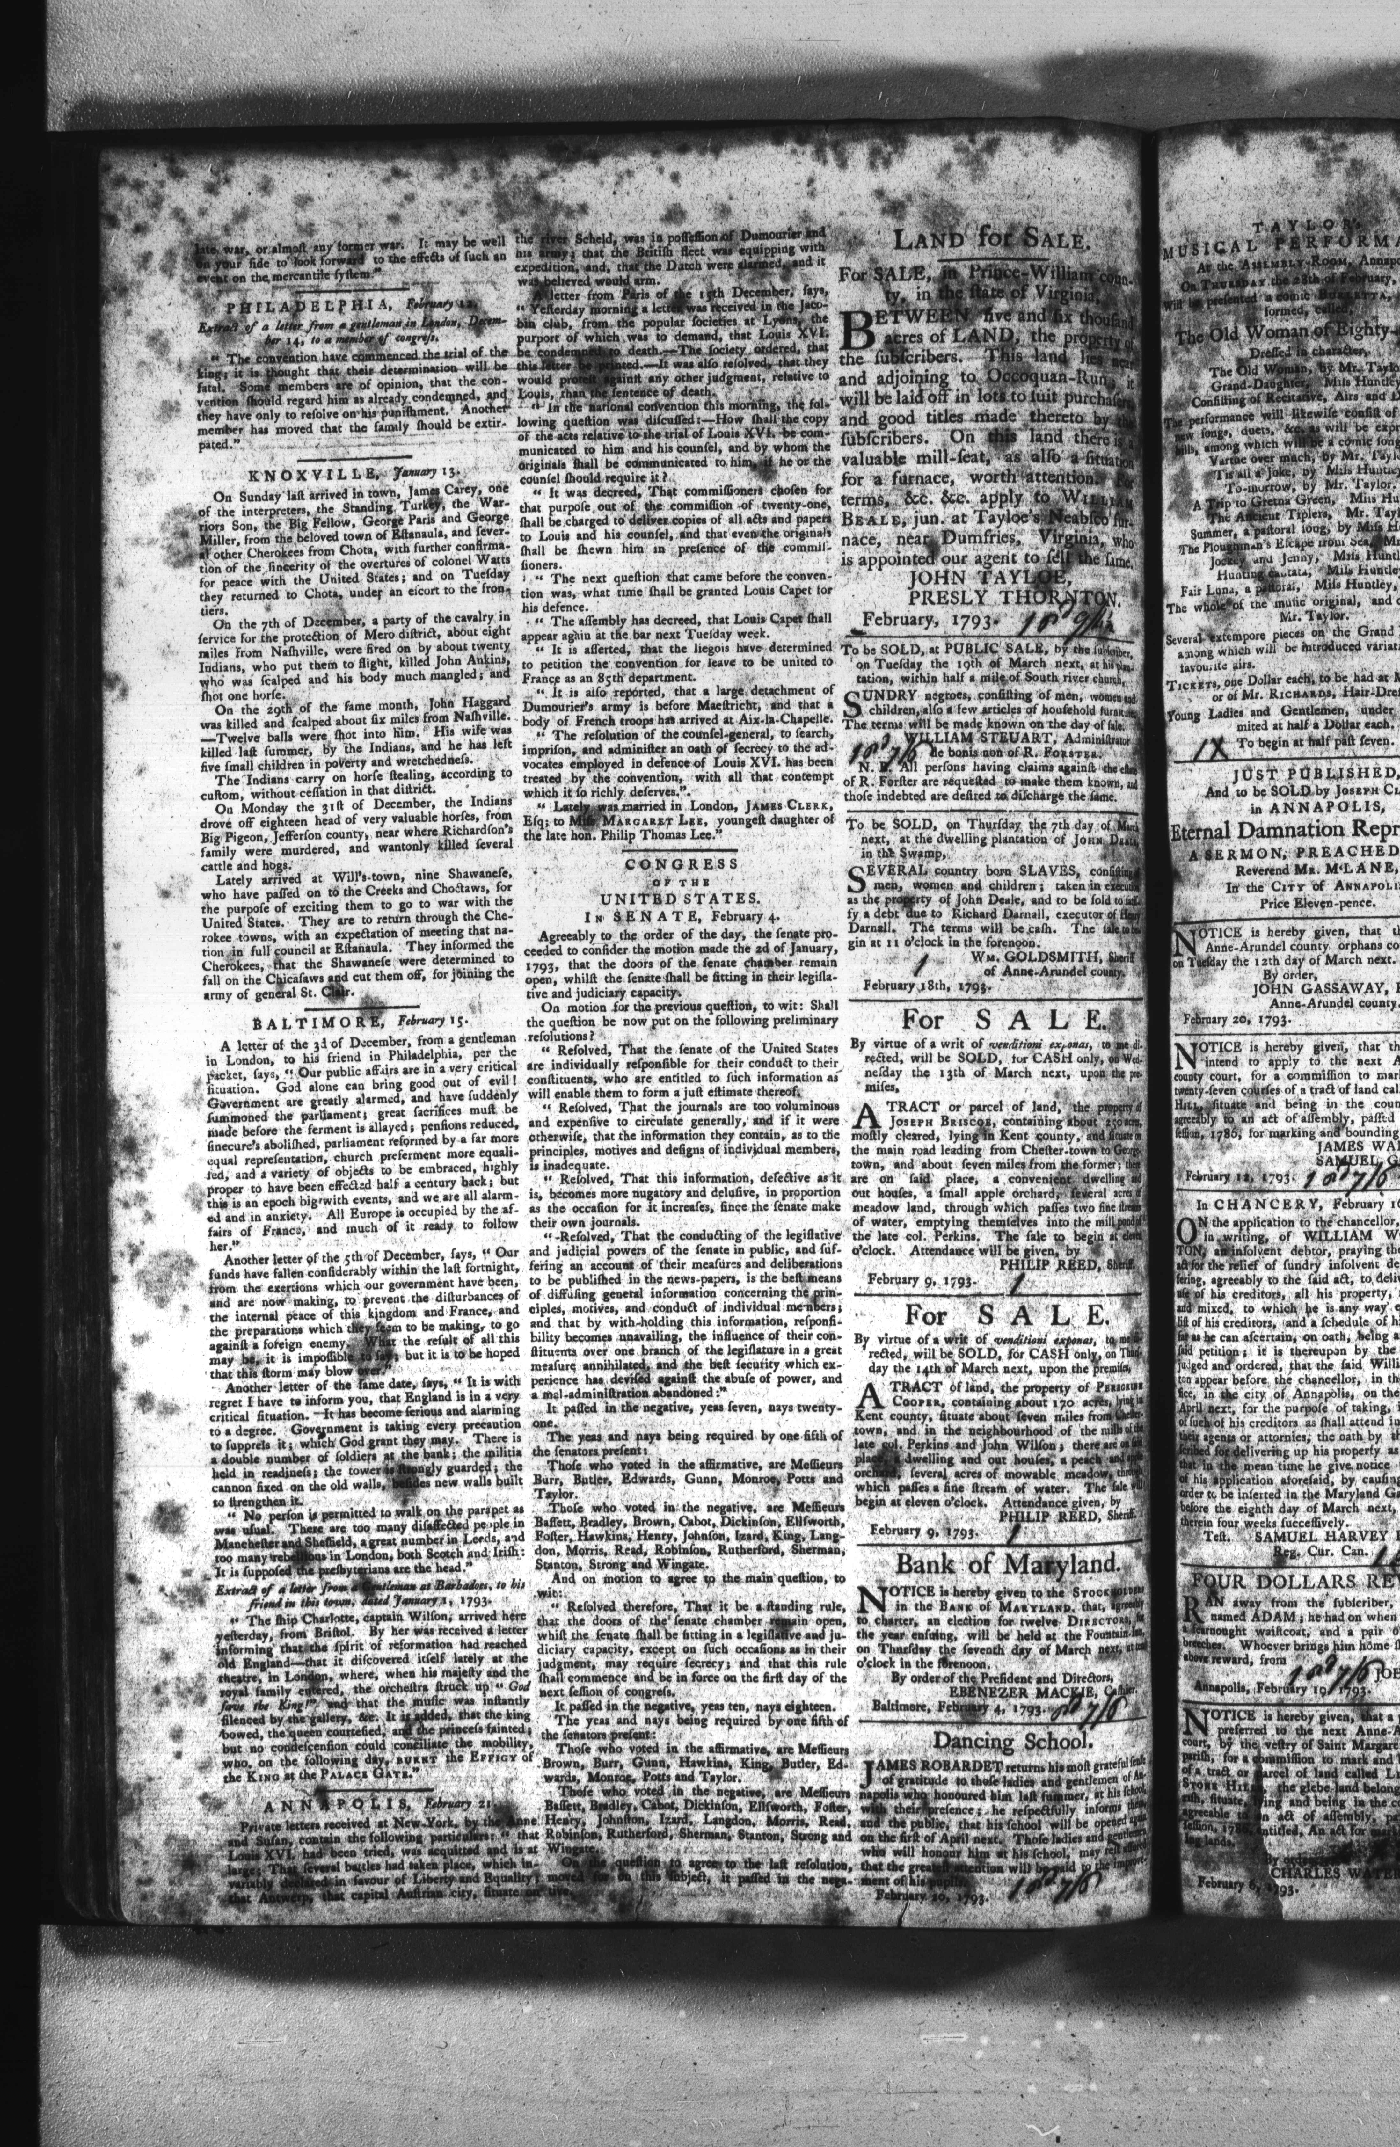 late war, or almost any former war. It may be well
on your side to look forward to the effects of such an
event on the mercantile system."
PHILADELPHIA, February 12.
Extract of a letter from a gentleman in London, Decem-
ber 14, to a member of congress.
" The convention have commenced the trial of the
king; it is thought that their determination will be
fatal. Some members are of opinion, that the con-
vention should regard him as already condemned, and
they have only to resolve on his punishment. Another
member has moved that the family should be extir-
pated."
KNOXVILLE, January 13.
On Sunday last arrived in town, James Carey, one
of the interpreters, the Standing Turkey, the War-
riors Son, the Big Fellow, George Paris and George
Miller, from the beloved town of Estanaula, and sever-
al other Cherokees from Chota, with further confirma-
tion of the sincerity of the overtures of colonel Watts
for peace with the United States; and on Tuesday
they returned to Chota, under an escort to the fron-
tiers.
On the 7th of December, a party of the cavalry in
service for the protection of Mero district, about eight
miles from Nashville, were fired on by about twenty
Indians, who put them to flight, killed John Ankins,
who was scalped and his body much mangled; and
shot one horse.
On the 29th of the same month, John Haggard
was killed and scalped about six miles from Nashville.
—Twelve balls were shot into him. His wife was
killed last summer, by the Indians, and he has left
five small children in poverty and wretchedness.
The Indians carry on horse stealing, according to
custom, without cessation in that district.
On Monday the 31st of December, the Indians
drove off eighteen head of very valuable horses, from
Big Pigeon, Jefferson county, near where Richardson's
family were murdered, and wantonly killed several
cattle and hogs.
Lately arrived at Will's-town, nine Shawanese,
who have passed on to the Creeks and Choctaws, for
the purpose of exciting them to go to war with the
United States. They are to return through the Che-
rokee towns, with an expectation of meeting that na-
tion in full council at Estanaula. They informed the
Cherokees, that the Shawanese were determined to
fall on the Chicasaws and cut them off, for joining the
army of general St. Clair.
BALTIMORE, February 15.
A letter of the 3d of December, from a gentleman
in London, to his friend in Philadelphia, per the
packet, says, " Our public affairs are in a very critical
situation. God alone can bring good out of evil!
Government are greatly alarmed, and have suddenly
summoned the parliament; great sacrifices must be
made before the ferment is allayed; pensions reduced,
sinecure's abolished, parliament reformed by a far more
equal representation, church preferment more equali-
sed, and a variety of objects to be embraced, highly
proper to have been effected half a century back; but
this is an epoch big with events, and we are all alarm-
ed and in anxiety. All Europe is occupied by the af-
fairs of France, and much of it ready to follow
her."
Another letter of the 5th of December, says, " Our
funds have fallen considerably within the last fortnight,
from the exertions which our government have been,
and are now making, to prevent the disturbances of
the internal peace of this kingdom and France, and
the preparations which they seem to be making, to go
against a foreign enemy. What the result of all this
may be, it is impossible to say; but it is to be hoped
that this storm may blow over."
Another letter of the same date, says, " It is with
regret I have to inform you, that England is in a very
critical situation. It has become serious and alarming
to a degree. Government is taking every precaution
to suppress it; which God grant they may. There is
a double number of soldiers at the bank; the militia
held in readiness; the tower is strongly guarded; the
cannon fixed on the old walls, besides new walls built
to strengthen it.
" No person is permitted to walk on the parapet as
was usual. There are too many disaffected people in
Manchester and Sheffield, a great number in Leeds, and
too many rebellious in London, both Scotch and Irish:
It is supposed the presbyterians are the head."
Extract of a letter from a Gentleman at Barbadoes, to his
friend in this town, dated January 1, 1793.
" The ship Charlotte, captain Wilson, arrived here
yesterday, from Bristol. By her was received a letter
informing that the spirit of reformation had reached
old England—that it discovered itself lately at the
theatre, in London, where, when his majesty and the
royal family entered, the orchestra struck up " God
save the King!" and that the music was instantly
silenced by the gallery, &c. It is added, that the king
bowed, the queen courtesied, and the princess fainted;
but no condescention could conciliate the mobility,
who, on the following day, BURNT the EFFIGY of
the KING at the PALACE GATE."
ANNAPOLIS, February 21.
Private letters received at New-York, by the Anne
and Susan, contain the following particulars: " that
Louis XVI. had been tried, was acquitted and is at
large; That several battles had taken place, which in-
variably declared in favour of Liberty and Equality;
that Antwerp, that capital Austrian city, situate on
the river Scheld, was in possession of Dumourier and
his army; that the British fleet was equipping with
expedition, and, that the Dutch were alarmed, and it
was believed would arm.
A letter from Paris of the 15th December, says,
" Yesterday morning a letter was received in the Jaco-
bin club, from the popular societies at Lyons, the
purport of which was to demand, that Louis XVI.
be condemned to death.—The society ordered, that
this letter be printed.—It was also resolved, that they
would protest against any other judgment, relative to
Louis, than the sentence of death.
" In the national convention this morning, the fol-
lowing question was discussed:—How shall the copy
of the acts relative to the trial of Louis XVI. be com-
municated to him and his counsel, and by whom the
originals shall be communicated to him, if he or the
counsel should require it?
" It was decreed, That commissioners chosen for
that purpose out of the commission of twenty-one,
shall be charged to deliver copies of all acts and papers
to Louis and his counsel, and that even the originals
shall be shewn him in presence of the commis-
sioners.
" The next question that came before the conven-
tion was, what time shall be granted Louis Capet for
his defence.
" The assembly has decreed, that Louis Capet shall
appear again at the bar next Tuesday week.
" It is asserted, that the liegois have determined
to petition the convention for leave to be united to
France as an 85th department.
" It is also reported, that a large detachment of
Dumourier's army is before Maestricht, and that a
body of French troops has arrived at Aix-la-Chapelle.
" The resolution of the counsel-general, to search,
imprison, and administer an oath of secrecy to the ad-
vocates employed in defence of Louis XVI. has been
treated by the convention, with all that contempt
which it so richly deserves.".
" Lately was married in London, JAMES CLERK,
Esq; to Miss MARGARET LEE, youngest daughter of
the late hon. Philip Thomas Lee."
CONGRESS
OF THE
UNITED STATES.
IN SENATE, February 4.
Agreeably to the order of the day, the senate pro-
ceeded to consider the motion made the 2d of January,
1793, that the doors of the senate chamber remain
open, whilst the senate shall be sitting in their legisla-
tive and judiciary capacity.
On motion for the previous question, to wit: Shall
the question be now put on the following preliminary
resolutions?
" Resolved, That the senate of the United States
are individually responsible for their conduct to their
constituents, who are entitled to such information as
will enable them to form a just estimate thereof.
" Resolved, That the journals are too voluminous
and expensive to circulate generally, and if it were
otherwise, that the information they contain, as to the
principles, motives and designs of individual members,
is inadequate.
" Resolved, That this information, defective as it
is, becomes more nugatory and delusive, in proportion
as the occasion for it increases, since the senate make
their own journals.
" Resolved, That the conducting of the legislative
and judicial powers of the senate in public, and suf-
fering an account of their measures and deliberations
to be published in the news-papers, is the best means
of diffusing general information concerning the prin-
ciples, motives, and conduct of individual members;
and that by with-holding this information, responsi-
bility becomes unavailing, the influence of their con-
stituents over one branch of the legislature in a great
measure annihilated, and the best security which ex-
perience has devised against the abuse of power, and
a mal-administration abandoned:"
It passed in the negative, yeas seven, nays twenty-
one.
The yeas and nays being required by one fifth of
the senators present:
Those who voted in the affirmative, are Messieurs
Burr, Butler, Edwards, Gunn, Monroe, Potts and
Taylor.
Those who voted in the negative, are Messieurs
Bassett, Bradley, Brown, Cabot, Dickinson, Ellsworth,
Foster, Hawkins, Henry, Johnson, Izard, King, Lang-
don, Morris, Read, Robinson, Rutherford, Sherman,
Stanton, Strong and Wingate.
And on motion to agree to the main question, to
wit:
" Resolved therefore, That it be a standing rule,
that the doors of the senate chamber remain open,
whilst the senate shall be sitting in a legislative and ju-
diciary capacity, except on such occasions as in their
judgment, may require secrecy; and that this rule
shall commence and be in force on the first day of the
next session of congress.
It passed in the negative, yeas ten, nays eighteen.
The yeas and nays being required by one fifth of
the senators present:
Those who voted in the affirmative, are Messieurs
Brown, Burr, Gunn, Hawkins, King, Butler, Ed-
wards, Monroe, Potts and Taylor.
Those who voted in the negative, are Messieurs
Bassett, Bradley, Cabot, Dickinson, Ellsworth, Foster,
Henry, Johnston, Izard, Langdon, Morris, Read,
Robinson, Rutherford, Sherman, Stanton, Strong and
Wingate.
On the question to agree to the last resolution,
moved for on this subject, it passed in the nega-
tive.
LAND for SALE.
For SALE, in Prince-William coun-
ty, in the state of Virginia,
BETWEEN five and six thousand
acres of LAND, the property of
the subscribers. This land lies near
and adjoining to Occoquan-Run, it
will be laid off in lots to suit purchasers
and good titles made thereto by the
subscribers. On this land there is a
valuable mill-seat, as also a situation
for a furnace, worth attention. For
terms, &c. &c. apply to WILLIAM
BEALE, jun. at Tayloe's Neabsco fur-
nace, near Dumfries, Virginia, who
is appointed our agent to sell the same.
JOHN TAYLOE,
PRESLY THORNTON.
February, 1793.
To be SOLD, at PUBLIC SALE, by the subscriber,
on Tuesday the 19th of March next, at his plan-
tation, within half a mile of South river church,
SUNDRY negroes, consisting of men, women and
children, also a few articles of household furniture.
The terms will be made known on the day of sale.
WILLIAM STEUART, Administrator
de bonis non of R. FORSTER.
N. B. All persons having claims against the estate
of R. Forster are requested to make them known, and
those indebted are desired to discharge the same.
To be SOLD, on Thursday the 7th day of March
next, at the dwelling plantation of JOHN DEALE,
in the Swamp,
SEVERAL country born SLAVES, consisting of
men, women and children; taken in execution
as the property of John Deale, and to be sold to satis-
fy a debt due to Richard Darnall, executor of Henry
Darnall. The terms will be cash. The sale to be-
gin at 11 o'clock in the forenoon.
WM. GOLDSMITH, Sheriff
of Anne-Arundel county.
February 18th, 1793.
For SALE.
By virtue of a writ of venditioni exponas, to me di-
rected, will be SOLD, for CASH only, on Wed-
nesday the 13th of March next, upon the pre-
mises,
A TRACT or parcel of land, the property of
JOSEPH BRISCOE, containing about 250 acres,
mostly cleared, lying in Kent county, and situate on
the main road leading from Chester-town to George-
town, and about seven miles from the former; there
are on said place, a convenient dwelling and
out houses, a small apple orchard, several acres of
meadow land, through which passes two fine streams
of water, emptying themselves into the mill pond of
the late col. Perkins. The sale to begin at eleven
o'clock. Attendance will be given, by
PHILIP REED, Sheriff.
February 9, 1793.
For SALE.
By virtue of a writ of venditioni exponas, to me di-
rected, will be SOLD, for CASH only, on Thurs-
day the 14th of March next, upon the premises,
A TRACT of land, the property of PEREGRINE
COOPER, containing about 170 acres, lying in
Kent county, situate about seven miles from Chester-
town, and in the neighbourhood of the mills of the
late col. Perkins and John Wilson; there are on said
place, a dwelling and out houses, a peach and apple
orchard, several acres of mowable meadow, through
which passes a fine stream of water. The sale will
begin at eleven o'clock. Attendance given, by
PHILIP REED, Sheriff.
February 9, 1793.
Bank of Maryland.
NOTICE is hereby given to the STOCKHOLDERS
in the BANK of MARYLAND, that, agreeably
to charter, an election for twelve DIRECTORS, for
the year ensuing, will be held at the Fountain-Inn,
on Thursday the seventh day of March next, at ten
o'clock in the forenoon.
By order of the President and Directors,
EBENEZER MACKIE, Cashier.
Baltimore, February 4, 1793.
Dancing School.
JAMES ROBARDET returns his most grateful sense
of gratitude to those ladies and gentlemen of An-
napolis who honoured him last summer, at his school,
with their presence; he respectfully informs them,
and the public, that his school will be opened again
on the first of April next. Those ladies and gentlemen
who will honour him at his school, may rest assured
that the greatest attention will be paid to the improve-
ment of his pupils.
February 20, 1793.
TAYLOR's
MUSICAL PERFORMA
At the ASSEMBLY-ROOM, Annapo
On THURSDAY the 28th of February
will be presented a comic BURLETTA
formed, called,
The Old Woman of Eighty-
Dressed in character,
The Old Woman, by Mr. Taylo
Grand-Daughter, Miss Huntle
Consisting of Recitative, Airs and D
The performance will likewise consist of
new songs, duets, &c. as will be expr
bills, among which will be a comic song
Vartue over much, by Mr. Taylo
Tis all a joke, by Miss Huntle
To-morrow, by Mr. Taylor.
A Trip to Gretna Green, Miss Hu
The Ancient Tiplers, Mr. Tayl
Summer, a pastoral song, by Miss H
The Ploughman's Escape from Sea, Mr
Jockey and Jenny, Miss Huntl
Hunting cantata, Miss Huntle
Fair Luna, a pastoral, Miss Huntley,
The whole of the music original, and c
Mr. Taylor.
Several extempore pieces on the Grand
among which will be introduced variati
favourite airs.
TICKETS, one Dollar each, to be had at M
or of Mr. RICHARDS, Hair-Dres
Young Ladies and Gentlemen, under
mited at half a Dollar each.
To begin at half past seven.
JUST PUBLISHED,
And to be SOLD by JOSEPH CL
in ANNAPOLIS,
Eternal Damnation Repr
A SERMON, PREACHED
Reverend MR. M'LANE,
In the CITY of ANNAPOLI
Price Eleven-pence.
NOTICE is hereby given, that th
Anne-Arundel county orphans co
on Tuesday the 12th day of March next.
By order,
JOHN GASSAWAY, R
Anne-Arundel county.
February 20, 1793.
NOTICE is hereby given, that th
intend to apply to the next A
county court, for a commission to mark
twenty-seven courses of a tract of land cal
HILL, situate and being in the coun
agreeably to an act of assembly, passed
session, 1786, for marking and bounding
JAMES WA
SAMUEL G
February 12, 1793.
In CHANCERY, February 1
ON the application to the chancellor,
in writing, of WILLIAM W
TON, an insolvent debtor, praying the
act for the relief of sundry insolvent de
fering, agreeably to the said act, to deliv
use of his creditors, all his property,
and mixed, to which he is any way
list of his creditors, and a schedule of hi
far as he can ascertain, on oath, being a
said petition; it is thereupon by the
judged and ordered, that the said Willi
ton appear before the chancellor, in th
fice, in the city of Annapolis, on the
April next, for the purpose of taking, i
of such of his creditors as shall attend i
their agents or attornies, the oath by th
scribed for delivering up his property as
that in the mean time he give notice
of his application aforesaid, by causing
order to be inserted in the Maryland Ga
before the eighth day of March next,
therein four weeks successively.
Test. SAMUEL HARVEY
Reg. Cur. Can.
FOUR DOLLARS RE
RAN away from the subscriber,
named ADAM; he had on when
a fearnought waistcoat, and a pair o
breeches. Whoever brings him home s
above reward, from
Annapolis, February 19, 1793.
NOTICE is hereby given, that a
preferred to the next Anne-A
court, by the vestry of Saint Margare
parish, for a commission to mark and
of a tract or parcel of land called
STONE HILL, the glebe-land belon
rish, situate, lying and being in the co
agreeable to an act of assembly, pa
session, 1786, entitled, An act for mar
ing lands.
By order
CHARLES WATE
February 6, 1793.